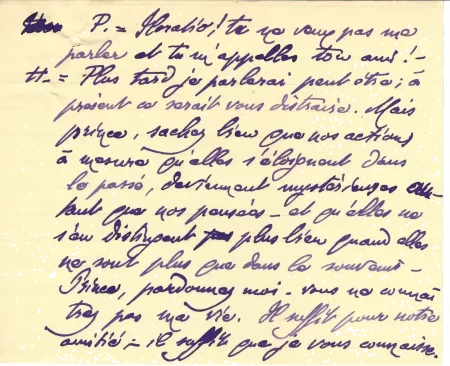 P. = Horatio! tu ne veux pas me
parler et tu m'appelles ton ami! -
H. = Plus tard je parlerai peut être; à
présent ce serait vous distraire. Mais
prince, sachez bien que nos actions
à mesure qu'elles s'éloignent dans
le passé, deviennent mystérieuses au-
tant que nos pensées - et qu'elles ne
s'en distinguent plus bien quand elles
ne sont plus que dans le souvenir -
Prince, pardonnez moi - vous ne connaî
trez pas ma vie. Il suffit pour notre
amitié - il suffit que je vous connaisse.